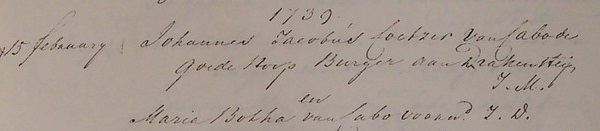 1739.
15 february Johannes Jacobus Coetzer van Cabo de
goede Hoop Burger aan Drakensteijn,
J. M.
en
Maria Botha van Cabo voornd. J. D.